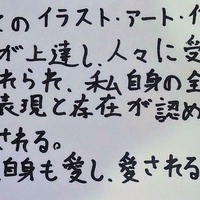 てのイラスト・アート・イ
が上達し、人々に受
れられ、私自身の全
表現と存在が認め
される。
自身も愛し、愛される